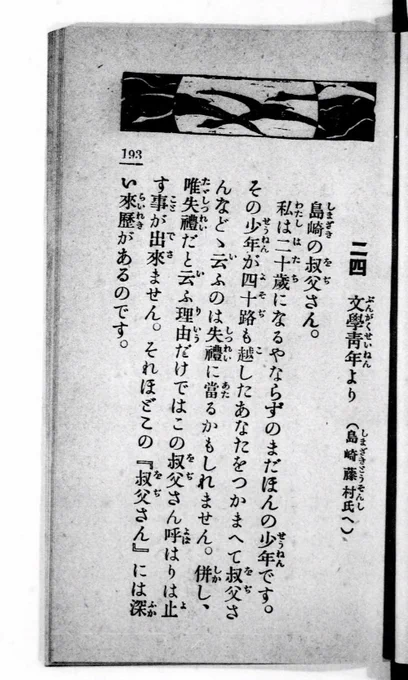 二四　文學靑年より（島崎藤村氏へ）
島崎の叔父さん。
私は二十歲になるやならずのまだほんの少年です。
その少年が四十路も越したあなたをつかまへて叔父さ
んなどゝ云ふのは失禮に當るかもしれません。併し、
唯失禮だと云ふ理由だけではこの叔父さん呼はりは止
す事が出來ません。それほどこの『叔父さん』には深
い來歷があるのです。
193